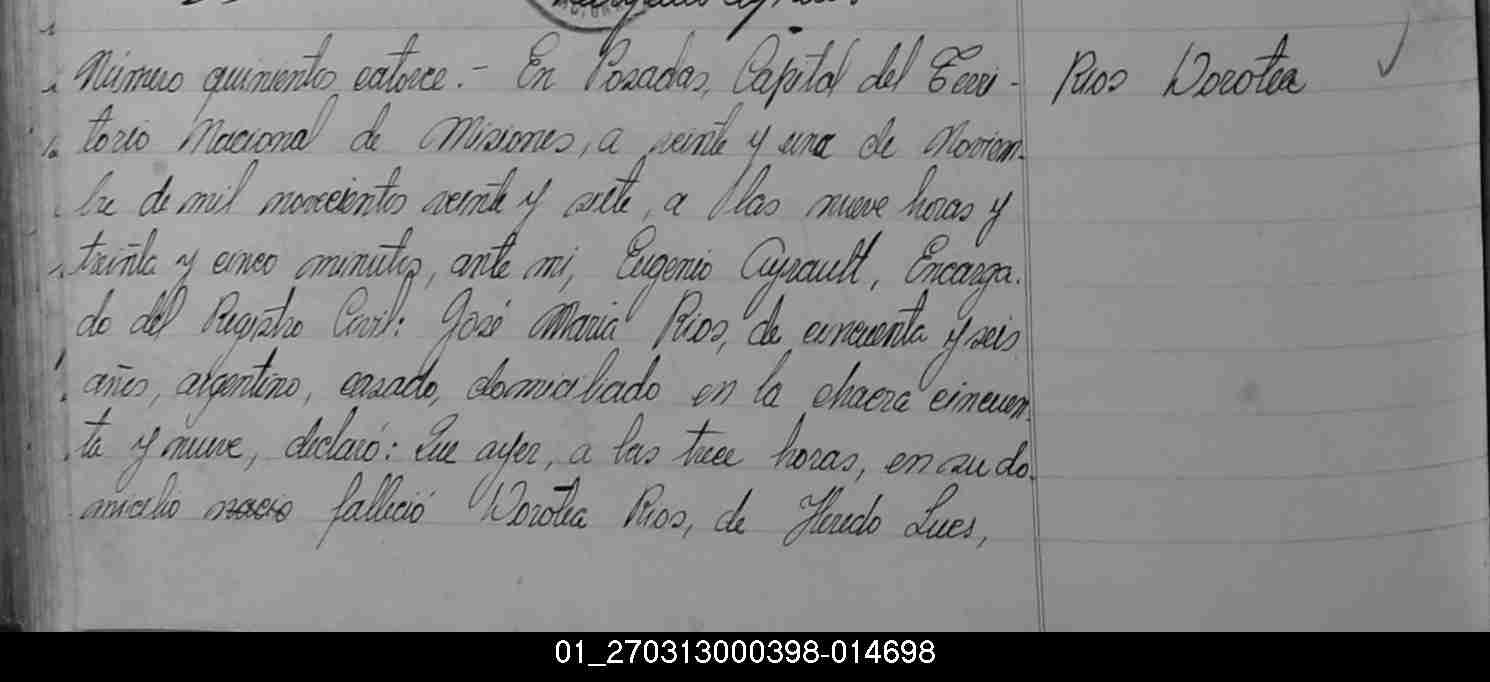 Número quinientos catorce.- En Posadas, Capital del Terri-
torio Nacional de Misiones, a veinte y uno de Noviem-
bre de mil novecientos veinte y siete, a las nueve horas y
treinta y cinco minutos, ante mi, Eugenio Ayrault, Encarga-
do del Registro Civil: José Maria Rios, de cincuenta y seis
años, argentino, casado, domiciliado en la chacra cincuen-
ta y nueve, declaró: Que ayer, a las trece horas, en su do-
micilio nacio falleció Dorotea Rios, de Heredo Lues,
Rios Dorotea
01_270313000398-014698